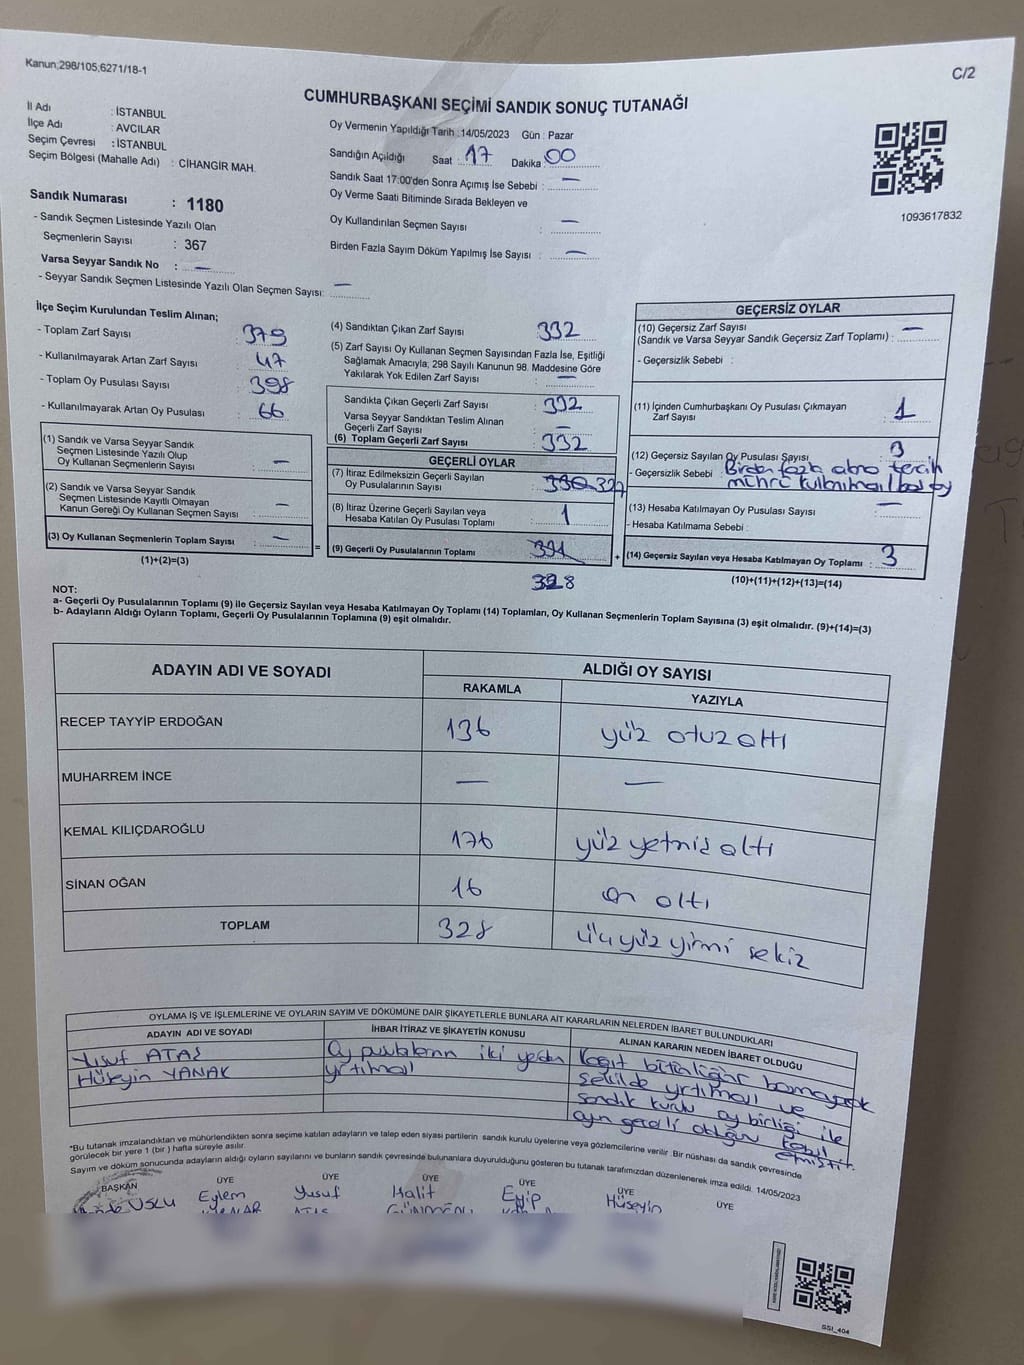 Kanun;298/105;6271/18-1
C/2
CUMHURBAŞKANI SEÇİMİ SANDIK SONUÇ TUTANAĞI
İl Adı : İSTANBUL
İlçe Adı : AVCILAR
Seçim Çevresi : İSTANBUL
Seçim Bölgesi (Mahalle Adı) : CİHANGİR MAH.
Sandık Numarası : 1180
- Sandık Seçmen Listesinde Yazılı Olan
Seçmenlerin Sayısı : 367
Varsa Seyyar Sandık No : —
- Seyyar Sandık Seçmen Listesinde Yazılı Olan Seçmen Sayısı: —
Oy Vermenin Yapıldığı Tarih :14/05/2023 Gün : Pazar
Sandığın Açıldığı Saat : 17 Dakika : 00
Sandık Saat 17:00'den Sonra Açımış İse Sebebi : —
Oy Verme Saati Bitiminde Sırada Bekleyen ve
Oy Kullandırılan Seçmen Sayısı : —
Birden Fazla Sayım Döküm Yapılmış İse Sayısı : —
1093617832
İlçe Seçim Kurulundan Teslim Alınan;
- Toplam Zarf Sayısı : 379
- Kullanılmayarak Artan Zarf Sayısı : 47
- Toplam Oy Pusulası Sayısı : 398
- Kullanılmayarak Artan Oy Pusulası : 66
(1) Sandık ve Varsa Seyyar Sandık
Seçmen Listesinde Yazılı Olup
Oy Kullanan Seçmenlerin Sayısı : —
(2) Sandık ve Varsa Seyyar Sandık
Seçmen Listesinde Kayıtlı Olmayan
Kanun Gereği Oy Kullanan Seçmen Sayısı : —
(3) Oy Kullanan Seçmenlerin Toplam Sayısı : —
(1)+(2)=(3)
=
(4) Sandıktan Çıkan Zarf Sayısı : 332
(5) Zarf Sayısı Oy Kullanan Seçmen Sayısından Fazla İse, Eşitliği
Sağlamak Amacıyla; 298 Sayılı Kanunun 98. Maddesine Göre
Yakılarak Yok Edilen Zarf Sayısı : —
Sandıkta Çıkan Geçerli Zarf Sayısı : 332
Varsa Seyyar Sandıktan Teslim Alınan
Geçerli Zarf Sayısı : —
(6) Toplam Geçerli Zarf Sayısı : 332
GEÇERLİ OYLAR
(7) İtiraz Edilmeksizin Geçerli Sayılan
Oy Pusulalarının Sayısı : 330 327
(8) İtiraz Üzerine Geçerli Sayılan veya
Hesaba Katılan Oy Pusulası Toplamı : 1
(9) Geçerli Oy Pusulalarının Toplamı : 331
328
+
GEÇERSİZ OYLAR
(10) Geçersiz Zarf Sayısı
(Sandık ve Varsa Seyyar Sandık Geçersiz Zarf Toplamı) : —
- Geçersizlik Sebebi :
(11) İçinden Cumhurbaşkanı Oy Pusulası Çıkmayan
Zarf Sayısı : 1
(12) Geçersiz Sayılan Oy Pusulası Sayısı : 3
- Geçersizlik Sebebi : Birden fazla alana tercih
mührü kullanılması / boş oy
(13) Hesaba Katılmayan Oy Pusulası Sayısı : —
- Hesaba Katılmama Sebebi :
(14) Geçersiz Sayılan veya Hesaba Katılmayan Oy Toplamı : 3
(10)+(11)+(12)+(13)=(14)
NOT:
a- Geçerli Oy Pusulalarının Toplamı (9) ile Geçersiz Sayılan veya Hesaba Katılmayan Oy Toplamı (14) Toplamları, Oy Kullanan Seçmenlerin Toplam Sayısına (3) eşit olmalıdır. (9)+(14)=(3)
b- Adayların Aldığı Oyların Toplamı, Geçerli Oy Pusulalarının Toplamına (9) eşit olmalıdır.
ADAYIN ADI VE SOYADI ALDIĞI OY SAYISI
RAKAMLA YAZIYLA
RECEP TAYYİP ERDOĞAN 136 yüz otuz altı
MUHARREM İNCE — —
KEMAL KILIÇDAROĞLU 176 yüz yetmiş altı
SİNAN OĞAN 16 on altı
TOPLAM 328 üç yüz yirmi sekiz
OYLAMA İŞ VE İŞLEMLERİNE VE OYLARIN SAYIM VE DÖKÜMÜNE DAİR ŞİKAYETLERLE BUNLARA AİT KARARLARIN NELERDEN İBARET BULUNDUKLARI
ADAYIN ADI VE SOYADI İHBAR İTİRAZ VE ŞİKAYETİN KONUSU ALINAN KARARIN NEDEN İBARET OLDUĞU
Yusuf ATAŞ Oy pusulalarının iki yerden Kağıt bütünlüğü bozmayacak
Hüseyin YANAK yırtılması şekilde yırtılması ve
sandık kurulu oy birliği ile
oyun geçerli olduğunu kabul
etmiştir.
"Bu tutanak imzalandıktan ve mühürlendikten sonra seçime katılan adayların ve talep eden siyasi partilerin sandık kurulu üyelerine veya gözlemcilerine verilir. Bir nüshası da sandık çevresinde
görülecek bir yere 1 (bir) hafta süreyle asılır.
Sayım ve döküm sonucunda adayların aldığı oyların sayılarını ve bunların sandık çevresinde bulunanlara duyurulduğunu gösteren bu tutanak tarafımızdan düzenlenerek imza edildi. 14/05/2023
BAŞKAN ÜYE ÜYE ÜYE ÜYE ÜYE ÜYE
USLU Eylem Yusuf Halit Eyip Hüseyin
ATAŞ
SSI_404